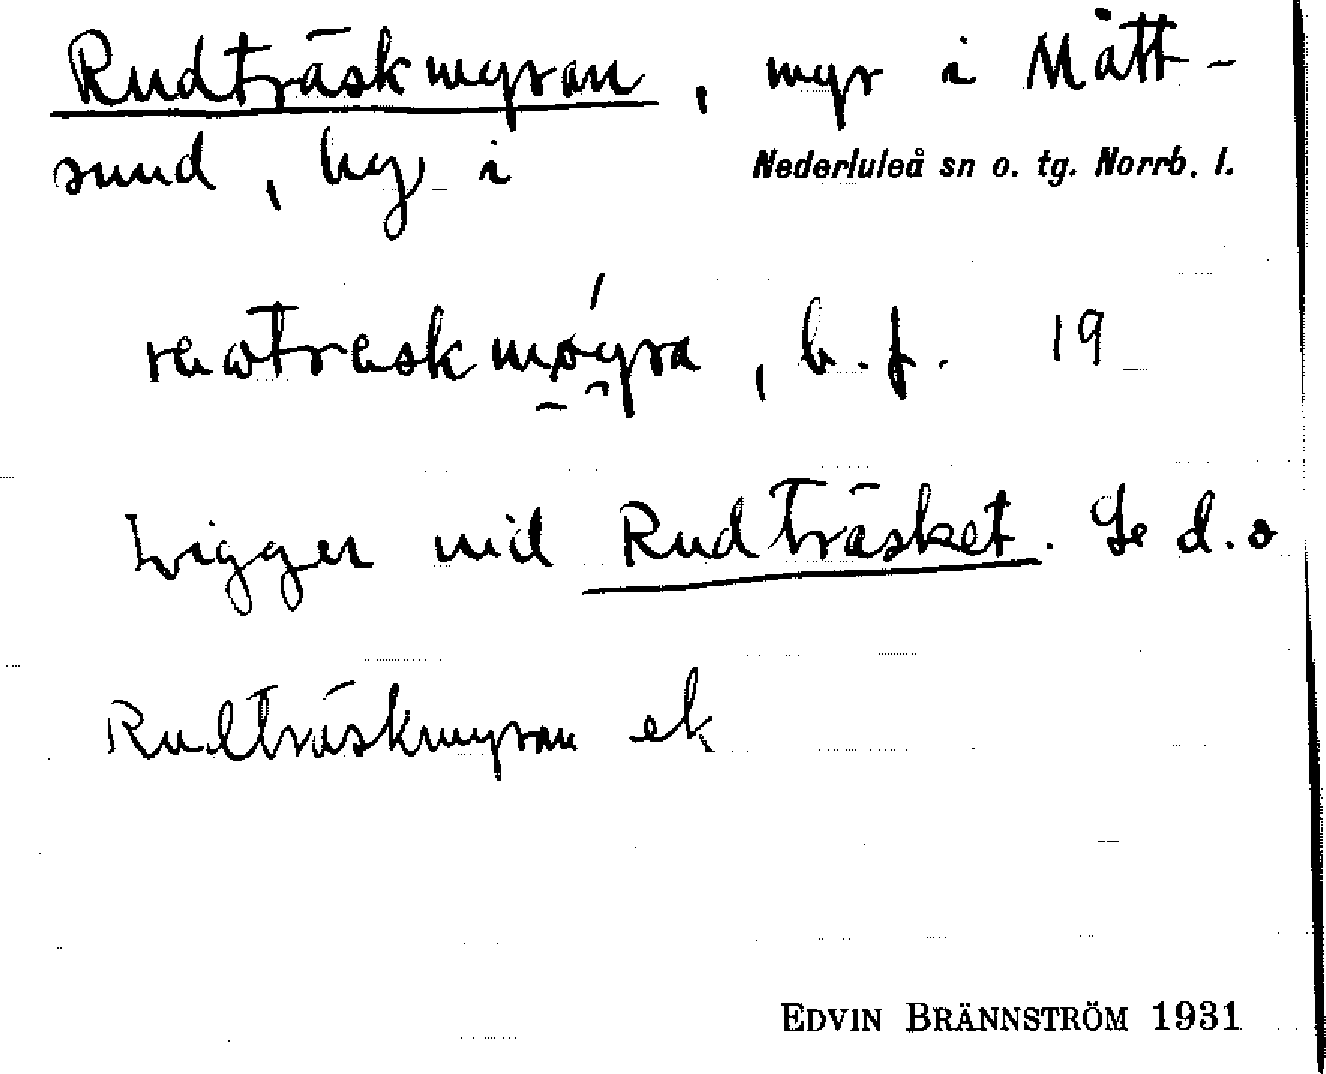 Rudträskmyran, myr i Mått-
sund, by i Nederluleå sn o. tg. Norrb. l.
b.f. 19
Ligger vid Rudträsket. Se d.o
Rudträskmyran ek
EDVIN BRÄNNSTRÖM 1931